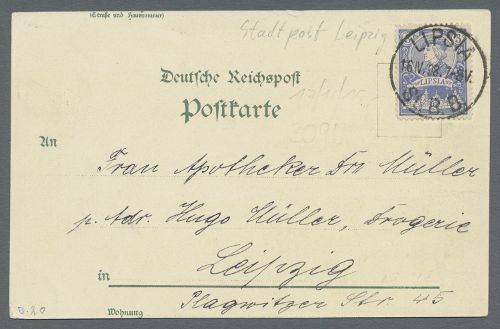 (Straße und Hausnummer)
Stadtpost Leipzig
LIPSIA
LIPSIA
Deutsche Reichspost
Postkarte
An
Frau Apotheker Müller
p. Adr. Hugo Müller, Drogerie
in Leipzig
Plagwitzer Str. 45
Wohnung